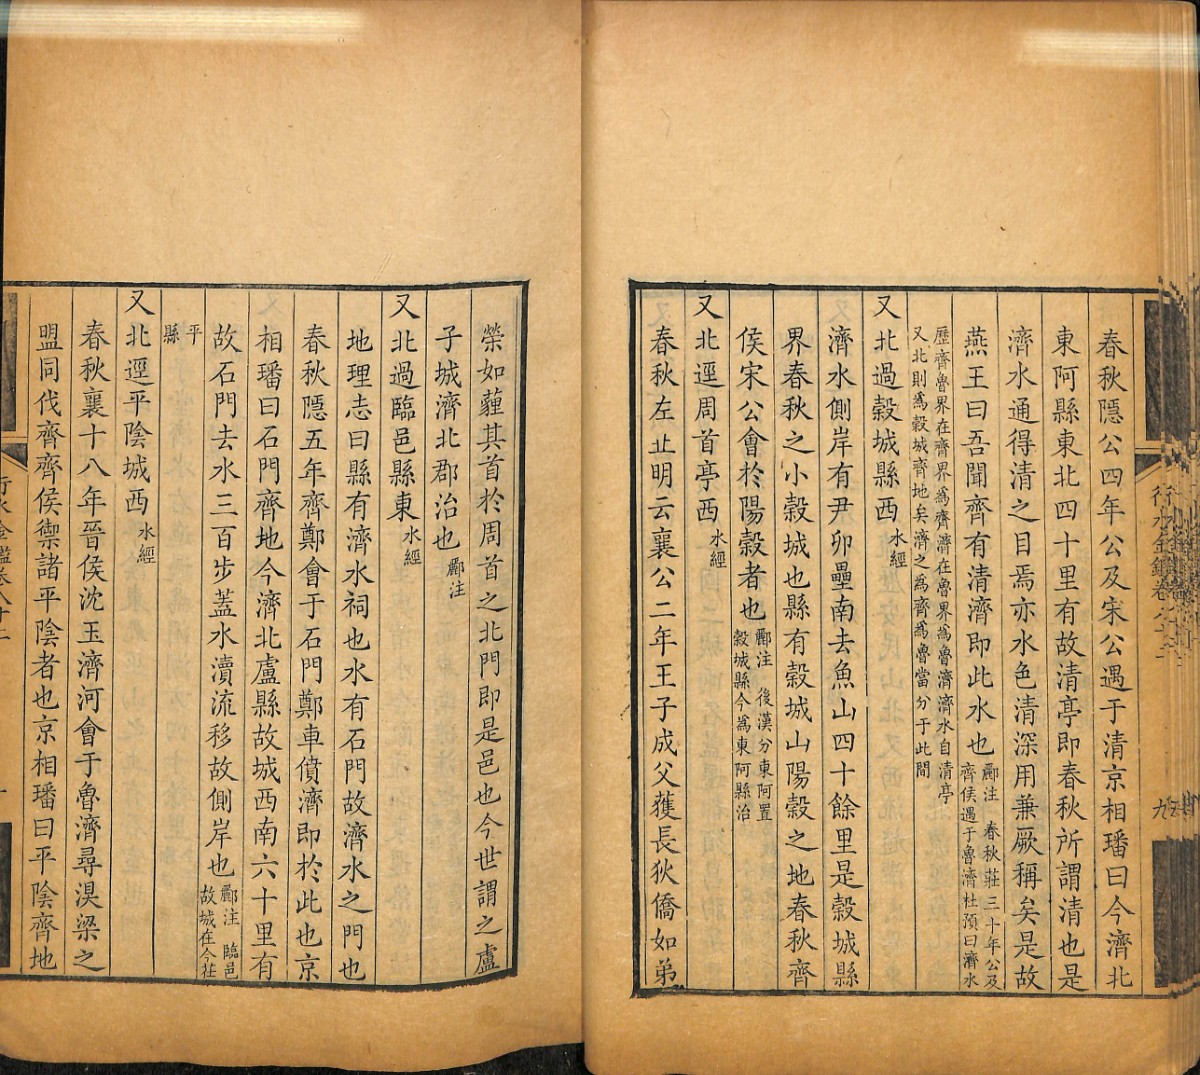 春秋隱公四年公及宋公遇于清京相璠曰今濟北
東阿縣東北四十里有故清亭即春秋所謂清也是
濟水通得清之目焉亦水色清深用兼厥稱矣是故
燕王曰吾聞齊有清濟即此水也酈注 春秋莊三十年公及
齊侯遇于魯濟杜預曰濟水
歷齊魯界在齊界爲齊濟在魯界爲魯濟濟水自清亭
又北則爲穀城齊地矣濟之爲齊爲魯當分于此間
又北過穀城縣西水經
濟水側岸有尹卯壘南去魚山四十餘里是穀城縣
界春秋之小穀城也縣有穀城山陽穀之地春秋齊
侯宋公會於陽穀者也酈注 後漢分東阿置
穀城縣今爲東阿縣治
又北逕周首亭西水經
春秋左丠明云襄公二年王子成父獲長狄僑如弟
榮如薶其首於周首之北門即是邑也今世謂之盧
子城濟北郡治也酈注
又北過臨邑縣東水經
地理志曰縣有濟水祠也水有石門故濟水之門也
春秋隱五年齊鄭會于石門鄭車僨濟即於此也京
相璠曰石門齊地今濟北盧縣故城西南六十里有
故石門去水三百步蓋水瀆流移故側岸也酈注 臨邑
故城在今茌
平
縣
又北逕平陰城西水經
春秋襄十八年晉侯沈玉濟河會于魯濟尋湨梁之
盟同伐齊齊侯禦諸平陰者也京相璠曰平陰齊地
行水金鑑卷八十二
九